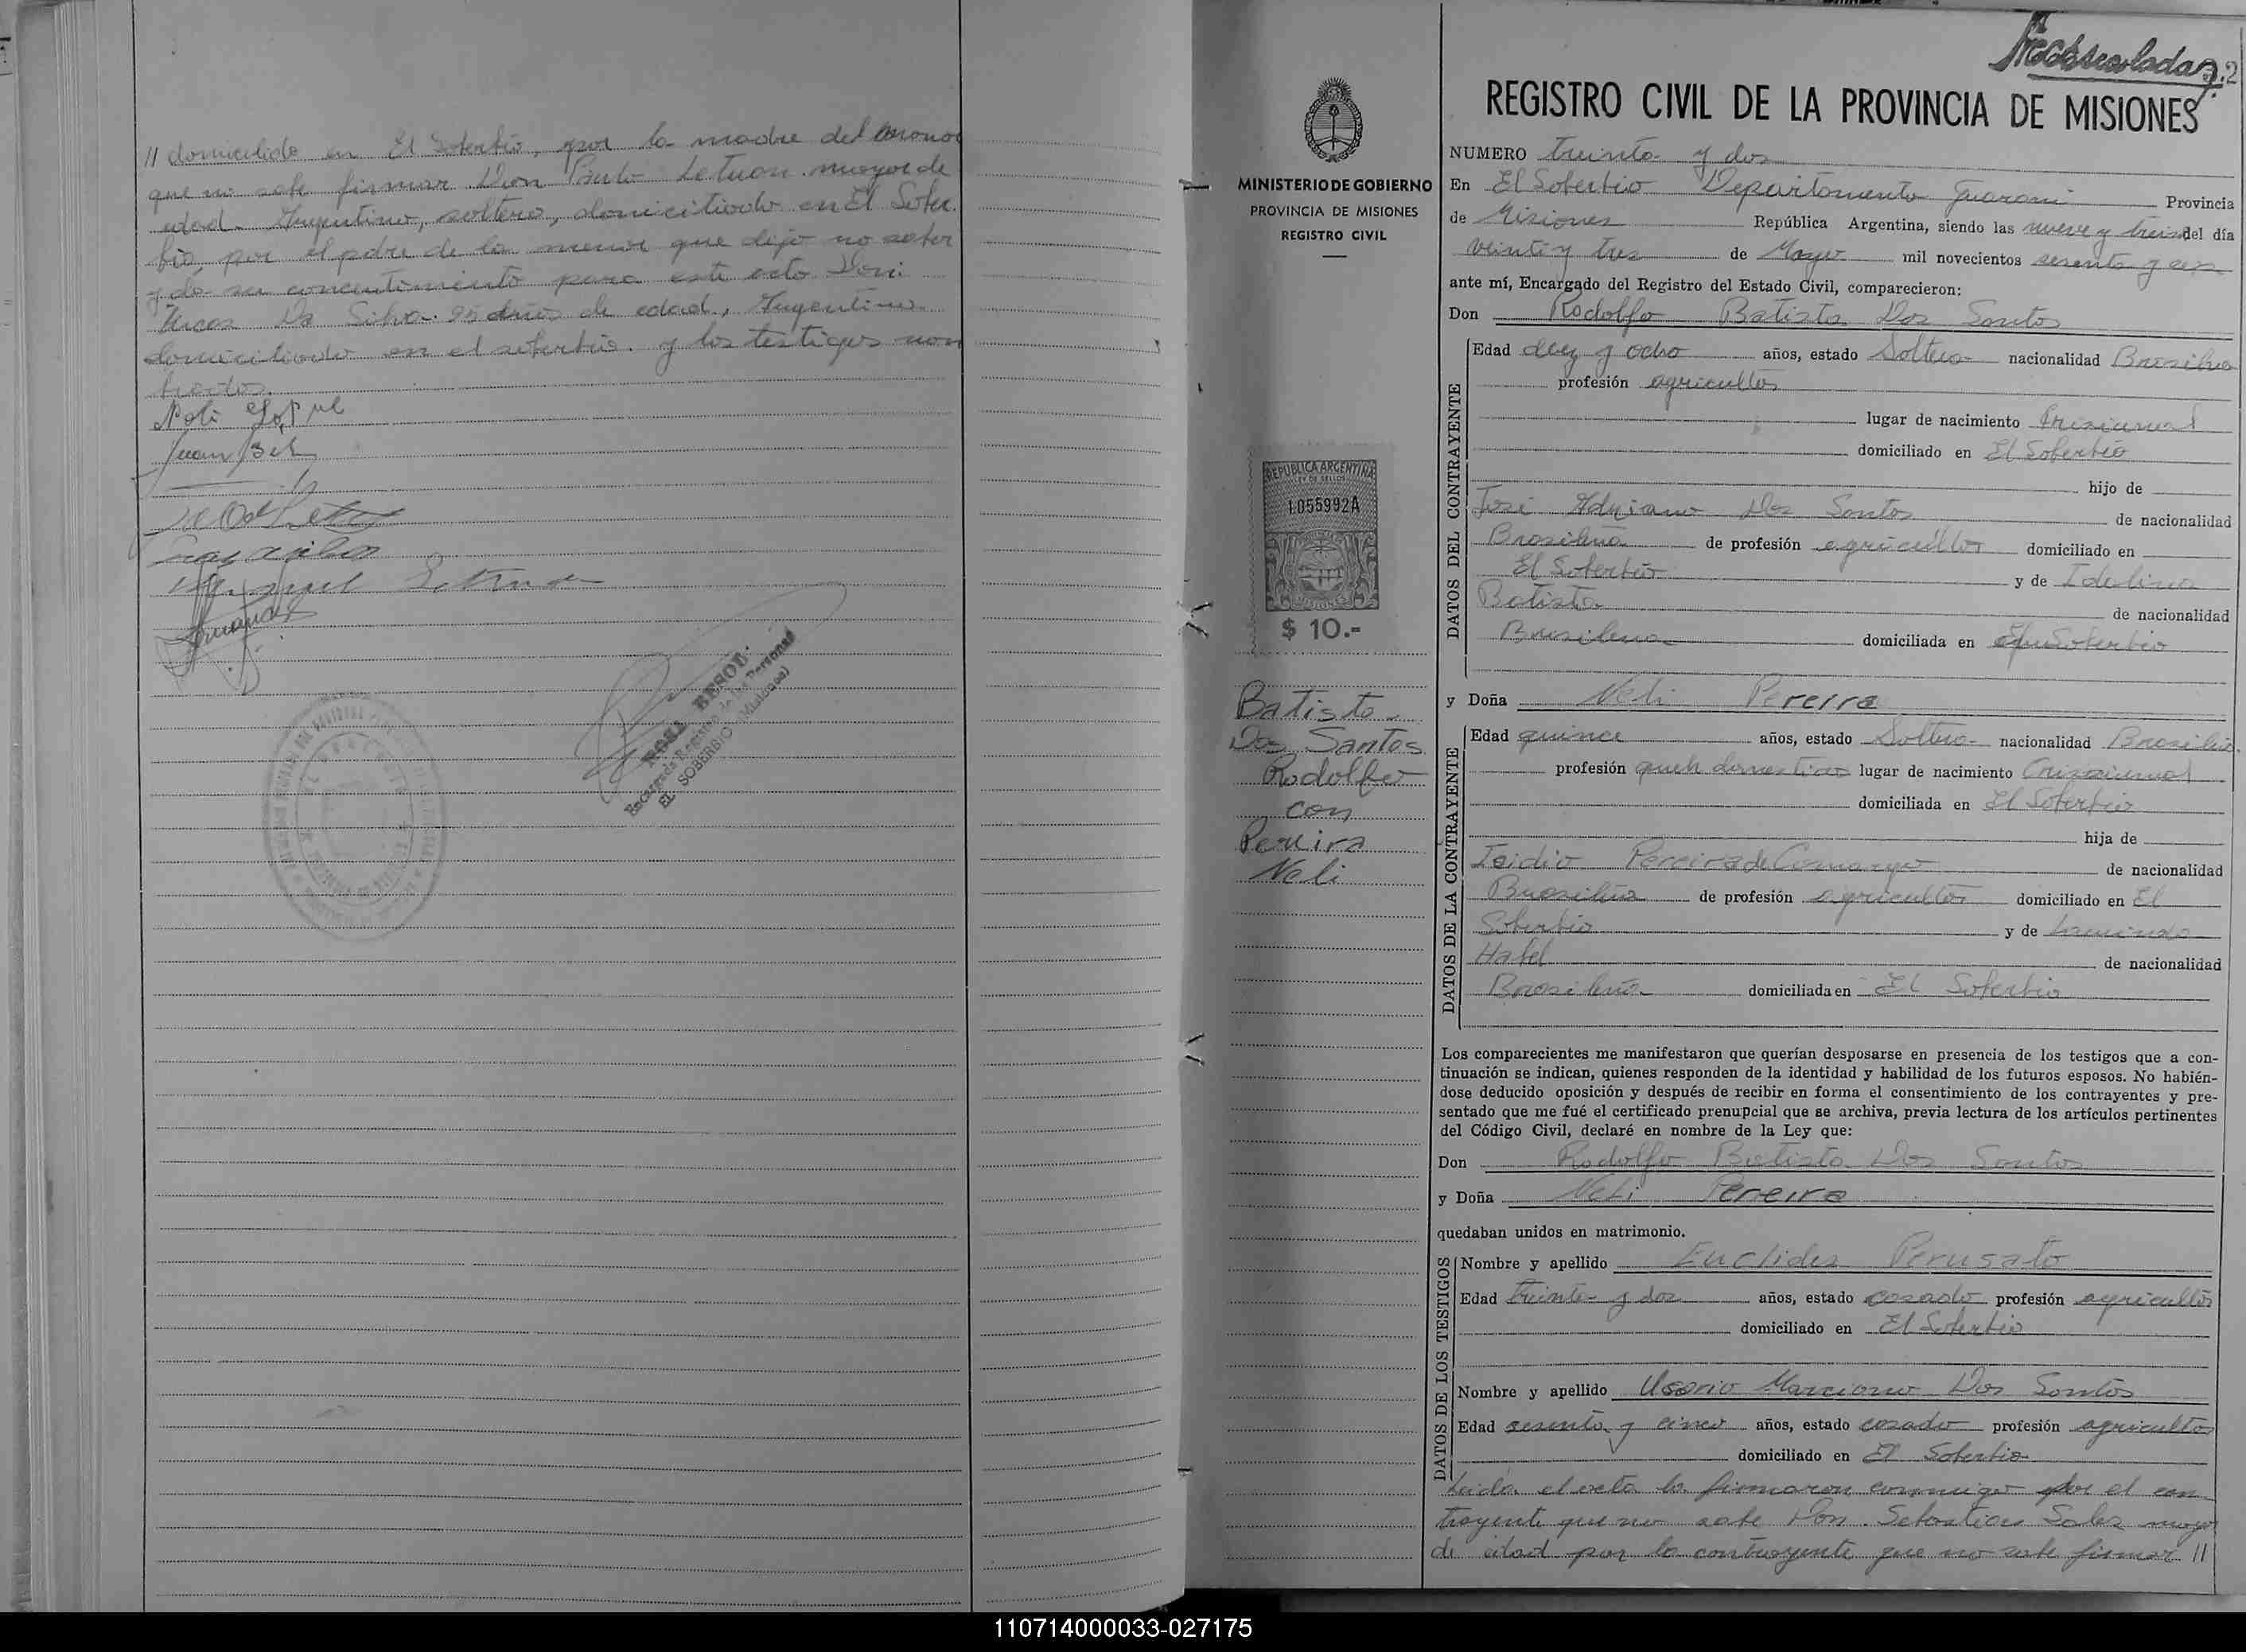 // domiciliado en El Soberbio, por la madre del menor
que no sabe firmar Don Paulo Letuan mayor de
edad. Argentino, soltero, domiciliado en El Sober
bio, por el padre de la menor que dijo no saber
y da su consentimiento para este acto Don
Da Silva. 25 años de edad, Argentino
domiciliado en el soberbio. y los testigos nom
brados.
Juan
Miguel
ROSA
Encargado Registro de las Personas
EL SOBERBIO (Misiones)
MINISTERIO DE GOBIERNO
PROVINCIA DE MISIONES
REGISTRO CIVIL
REPUBLICA ARGENTINA
LEY DE SELLOS
1.055992A
MISIONES
$ 10.-
Batista
Dos Santos
Rodolfo
con
Pereira
Neli
REGISTRO CIVIL DE LA PROVINCIA DE MISIONES
NUMERO treinta y dos
En El Soberbio Departamento Guarani Provincia
de Misiones República Argentina, siendo las nueve y treinta del día
veinti y tres de Mayo mil novecientos sesenta y
ante mí, Encargado del Registro del Estado Civil, comparecieron:
Don Rodolfo Batista Dos Santos
DATOS DEL CONTRAYENTE
Edad diez y ocho años, estado Soltero nacionalidad Brasileña
profesión agricultor
lugar de nacimiento Crisiumal
domiciliado en El Soberbio
hijo de
José Adriano Dos Santos de nacionalidad
Brasileña de profesión agricultor domiciliado en
El Soberbio y de Idalina
Batista de nacionalidad
Brasilena domiciliada en El Soberbio
y Doña Neli Pereira
DATOS DE LA CONTRAYENTE
Edad quince años, estado Soltera nacionalidad Brasileña
profesión queh domesticos lugar de nacimiento Crisiumal
domiciliada en El Soberbio
hija de
Isidio Pereira de Camargo de nacionalidad
Brasileña de profesión agricultor domiciliado en El
Soberbio y de
Habel de nacionalidad
Brasileña domiciliada en El Soberbio
Los comparecientes me manifestaron que querían desposarse en presencia de los testigos que a con-
tinuación se indican, quienes responden de la identidad y habilidad de los futuros esposos. No habién-
dose deducido oposición y después de recibir en forma el consentimiento de los contrayentes y pre-
sentado que me fué el certificado prenupcial que se archiva, previa lectura de los artículos pertinentes
del Código Civil, declaré en nombre de la Ley que:
Don Rodolfo Batista Dos Santos
y Doña Neli Pereira
quedaban unidos en matrimonio.
DATOS DE LOS TESTIGOS
Nombre y apellido Euclides Perusato
Edad treinta y dos años, estado casado profesión agricultor
domiciliado en El Soberbio
Nombre y apellido Usorio Marciano Dos Santos
Edad sesenta y cinco años, estado casado profesión agricultor
domiciliado en El Soberbio
Leida el acta la firmaron conmigo por el con
trayente que no sabe Don. Sebastian Sales mayor
de edad por la contrayente que no sabe firmar //
110714000033-027175